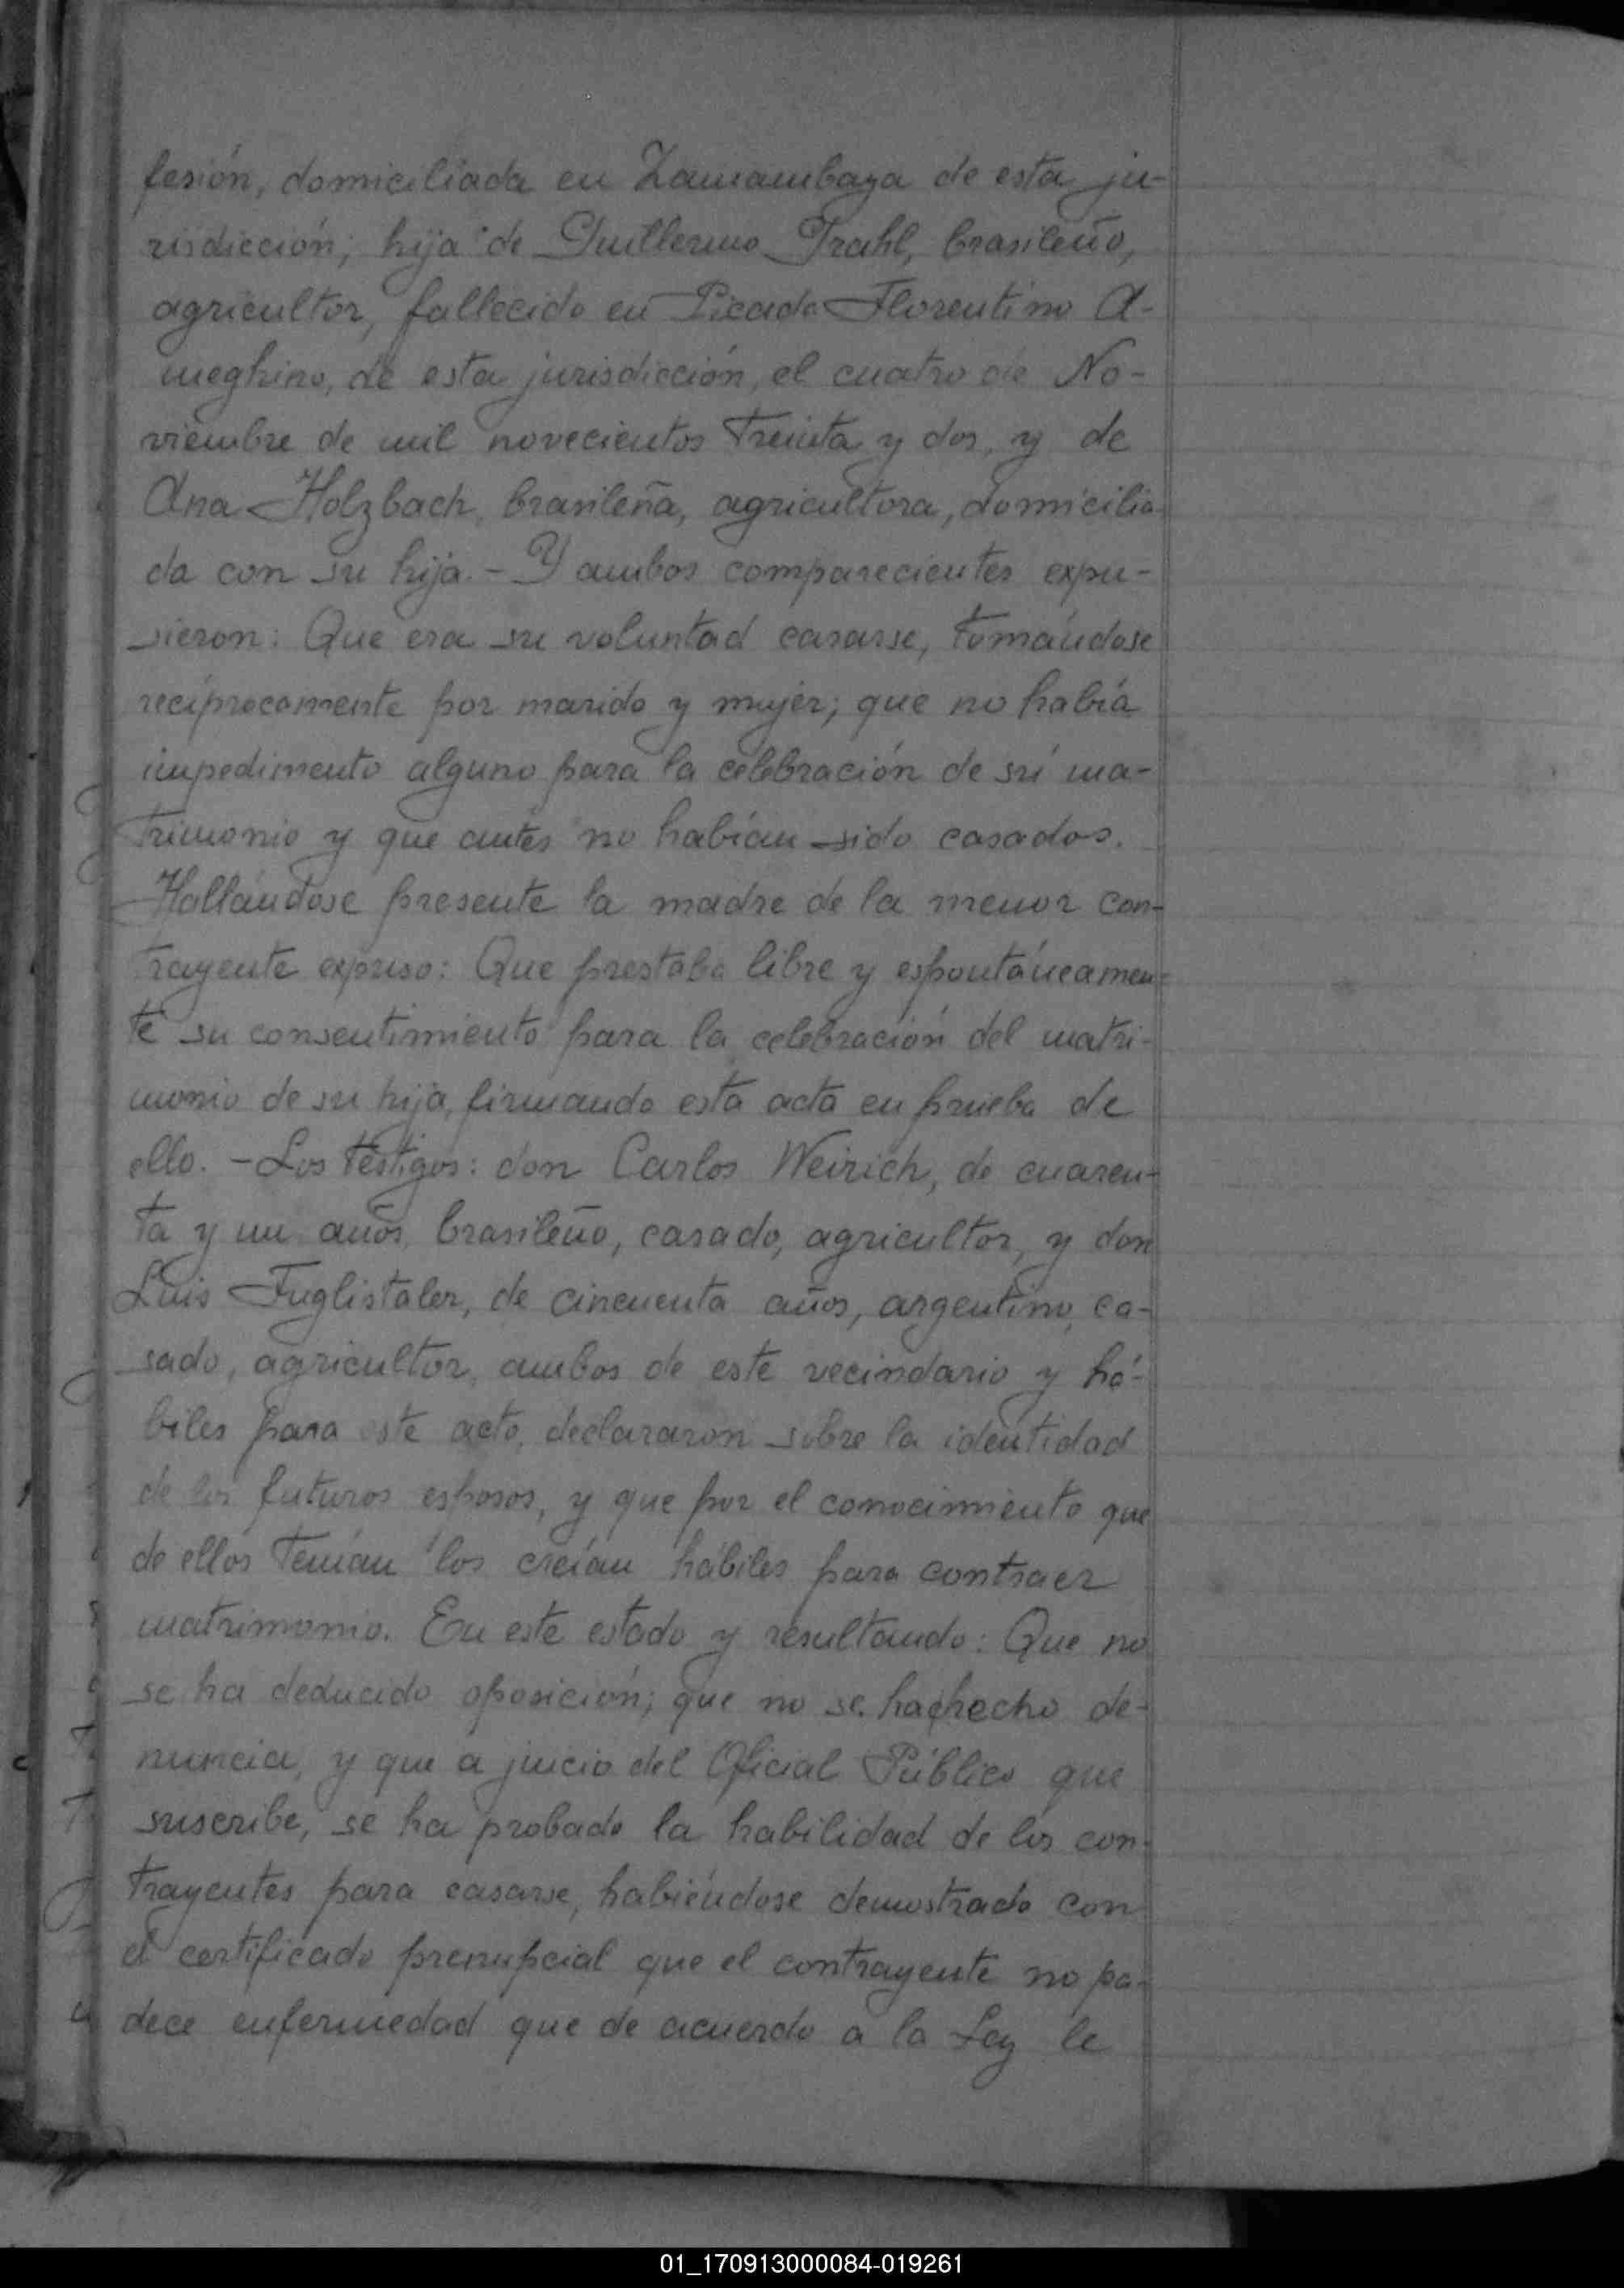 fesión, domiciliada en Zamambaya de esta ju-
risdicción; hija de Guillermo Trahl, brasileño,
agricultor, fallecido en Picada Florentino A-
meghino, de esta jurisdicción, el cuatro de No-
viembre de mil novecientos treinta y dos, y de
Ana Holzbach, brasileña, agricultora, domicilia-
da con su hija.- Y ambos comparecientes expu-
sieron: Que era su voluntad casarse, tomándose
recíprocamente por marido y mujer; que no había
impedimento alguno para la celebración de sú ma-
trimonio y que antes no habían sido casados.
Hallándose presente la madre de la menor con-
trayente expuso: Que prestaba libre y espontáneamen-
te su consentimiento para la celebración del matri-
monio de su hija, firmando esta acta en prueba de
ello. - Los testigos: don Carlos Weirich, de cuaren-
ta y un años, brasileño, casado, agricultor, y don
Luis Fuglistaler, de cincuenta años, argentino, ca-
sado, agricultor, ambos de este vecindario y há-
biles para este acto, declararon sobre la identidad
de los futuros esposos, y que por el conocimiento que
de ellos tenían los creían hábiles para contraer
matrimonio. En este estado y resultando: Que no
se ha deducido oposición; que no se ha hecho de-
nuncia, y que a juicio del Oficial Público que
suscribe, se ha probado la habilidad de los con-
trayentes para casarse, habiéndose demostrado con
el certificado prenupcial que el contrayente no pa-
dece enfermedad que de acuerdo a la Ley le
01_170913000084-019261